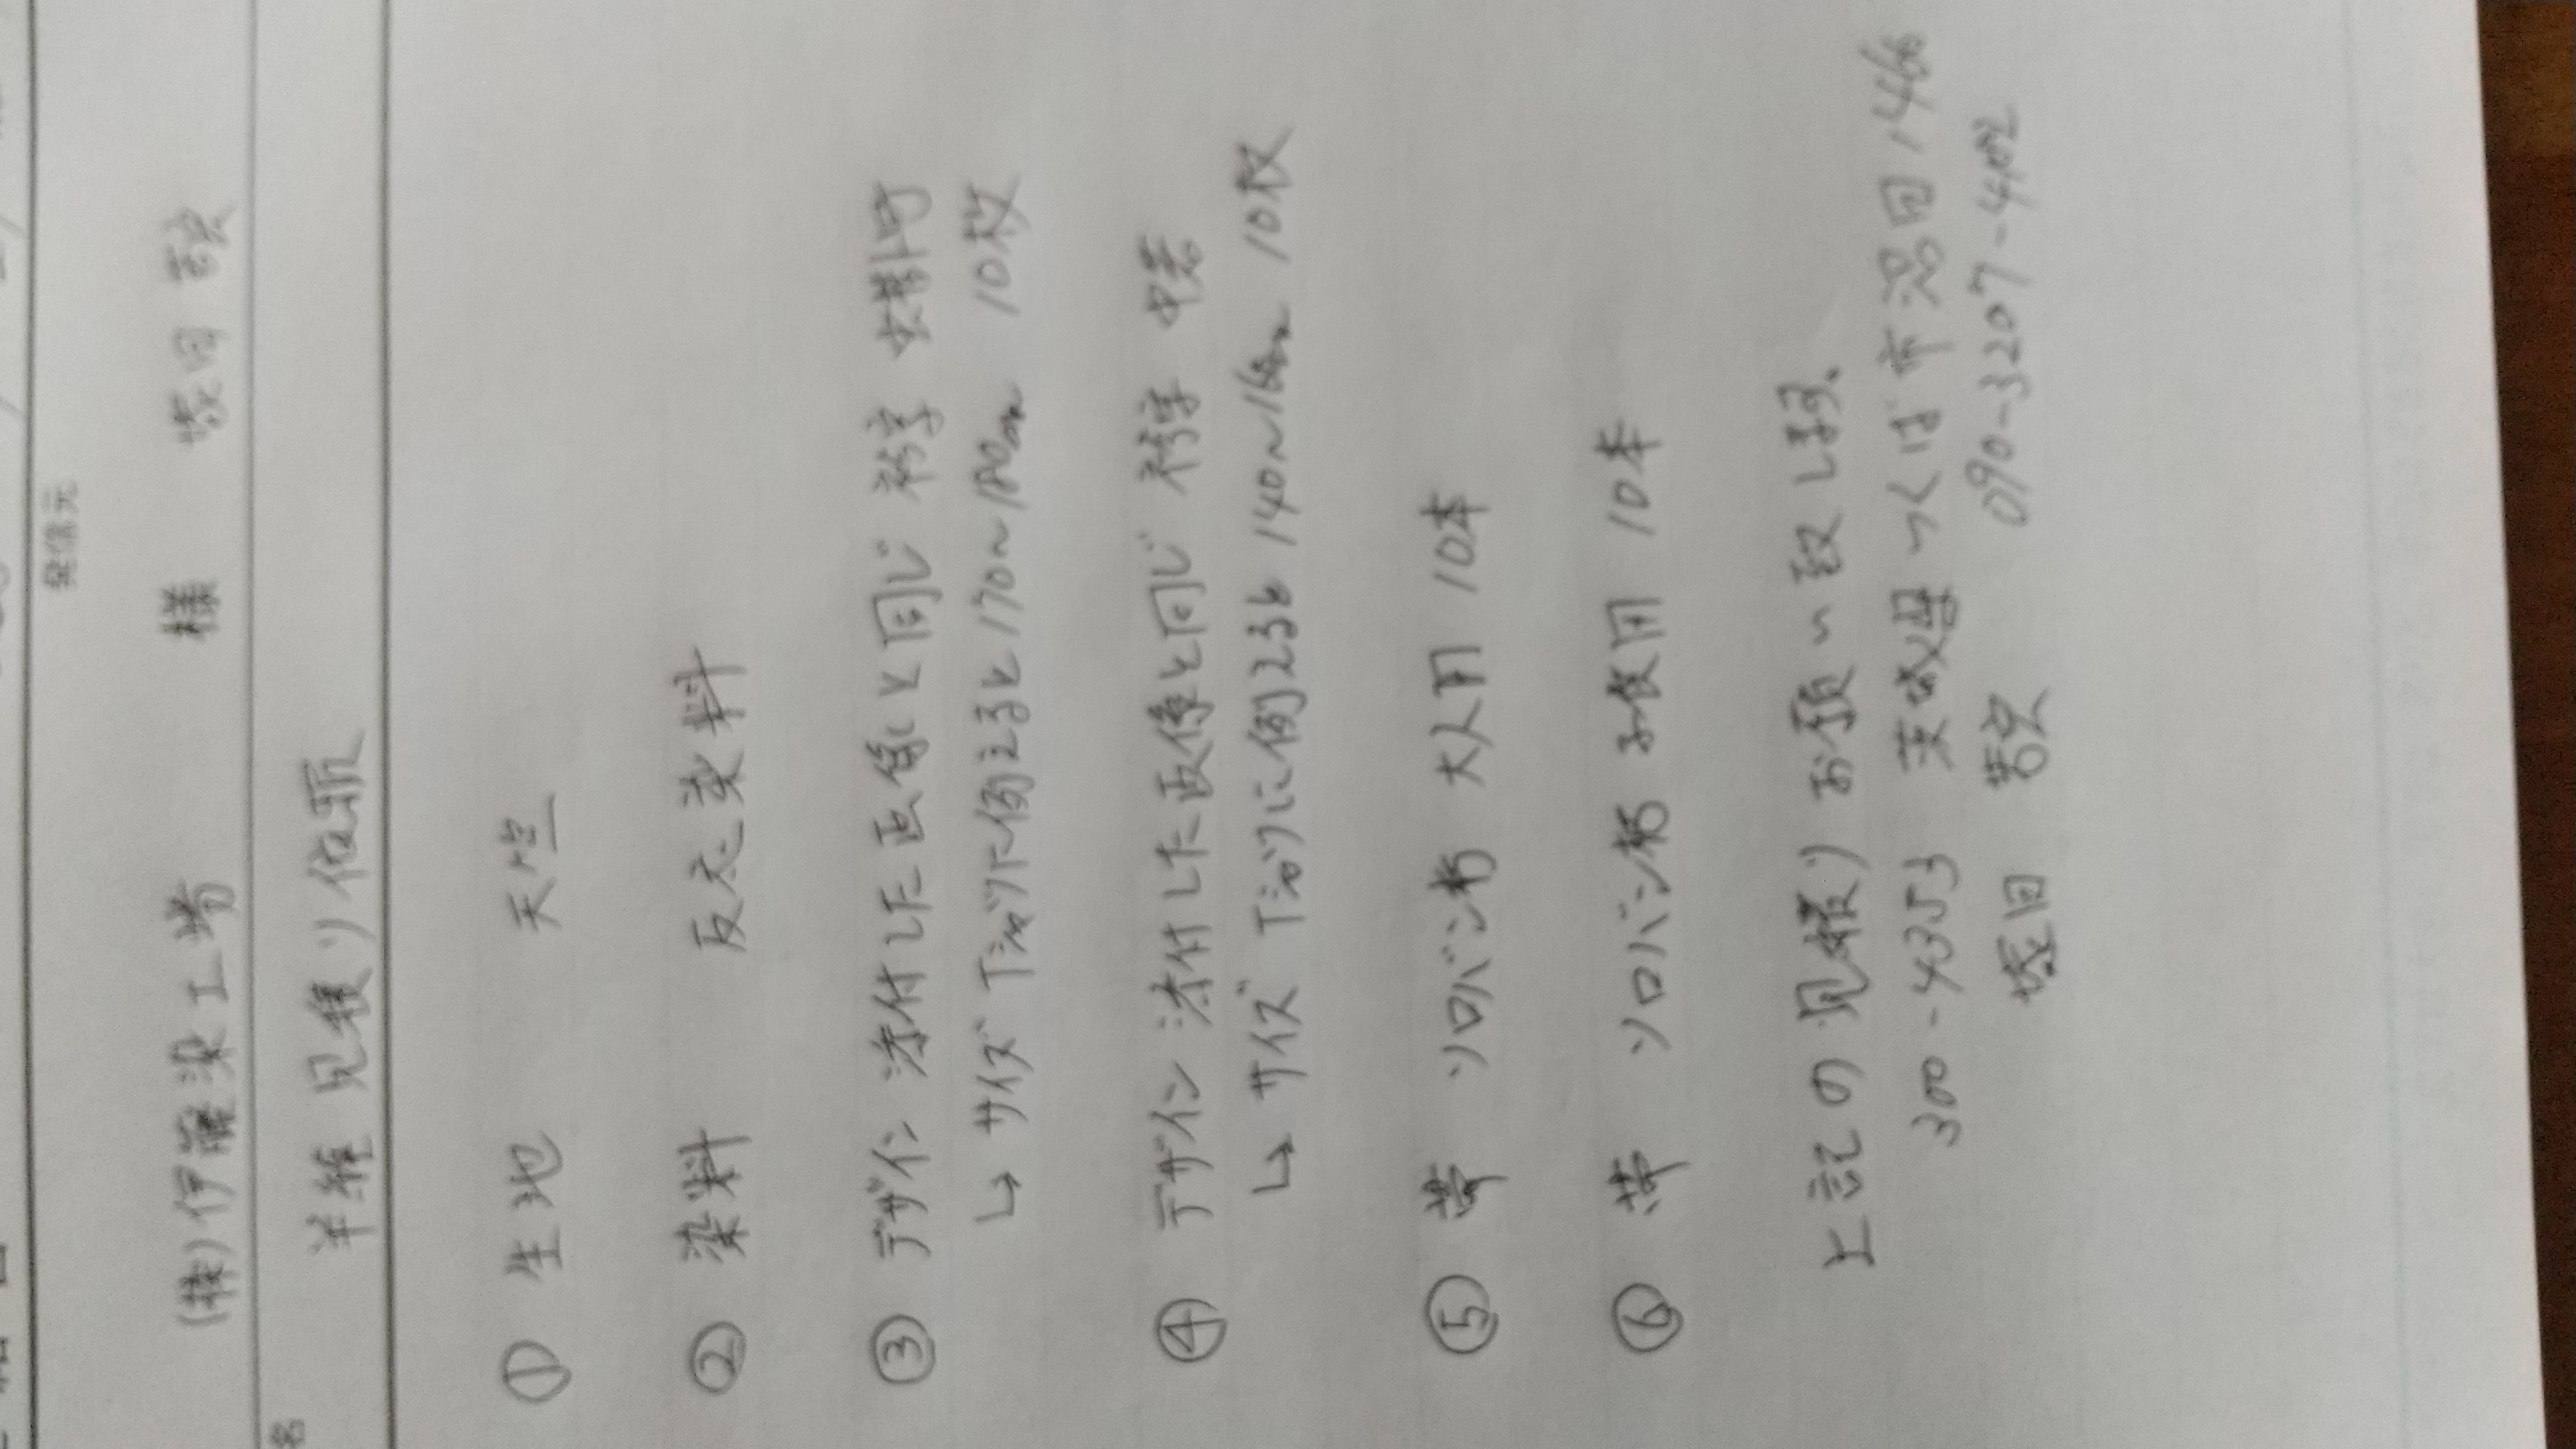 発信元
(株)伊藤染工場 様 塚田
名
半纏 見積り依頼
① 生地 天竺
② 染料 反応染料
③ デザイン 添付した画像と同じ 袢字 大
↳ サイズ Tシャツに例えると170～180cm 10枚
④ デザイン 添付した画像と同じ 袢字
↳ サイズ Tシャツに例えると 140～160cm 10枚
⑤ 帯 ソロバン柄 大人用 10本
⑥ 帯 ソロバン柄 子供用 10本
上記の見積りお願い致します、
300-4353 茨城県つくば市沼田1466
塚田 090-3207-4402